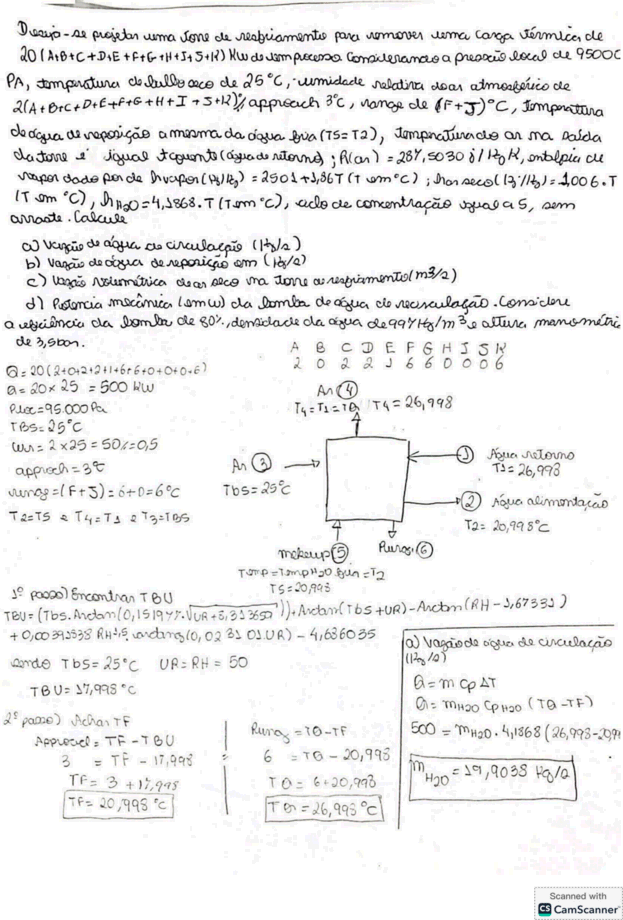 Deseja-se projetar uma torre de resfriamento para remover uma carga térmica de
20(A+B+C+D+E+F+G+H+I+J+K) KW de um processo considerando a pressão local de 95000
PA, temperatura de bulbo seco de 25°C, umidade relativa do ar atmosférico de
2(A+B+C+D+E+F+G+H+I+J+K)%, approach 3°C, range de (F+J)°C, temperatura
de água de reposição a mesma da água fria (T5=T2), temperatura do ar na saída
da torre é igual T quente (água de retorno); R(ar) = 287,5030 J/Kg K, entalpia de
vapor dado por de hvapor(KJ/Kg) = 2501+1,86T (T em °C); har seco (KJ/Kg) = 1,006.T
(T em °C), hH2O = 4,1868.T (T em °C), ciclo de concentração igual a 5, sem
arraste. Calcule
a) Vazão de água de circulação (Kg/s)
b) Vazão de água de reposição em (Kg/s)
c) Vazão volumétrica de ar seco na torre de resfriamento (m3/s)
d) Potencia mecânica (em W) da bomba de água de recirculação. Considere
a eficiência da bomba de 80%, densidade da água de 997 Kg/m³ e altura manométric
de 3,5 bar.
A B C D E F G H I J K
2 0 2 2 1 6 6 0 0 0 6
Q = 20(2+0+2+2+1+6+6+0+0+0+6)
Q = 20 x 25 = 500 KW
Ploc = 95.000 Pa
TBS = 25°C
UR = 2 x 25 = 50% = 0,5
approach = 3°C
range = (F+J) = 6+0 = 6°C
T2=T5 e T4=T1 e T3=TBS
Ar (4)
T4=T1=TQ T4 = 26,998
Ar (3)
Tbs = 25°C
(1) Água retorno
T1 = 26,998
(2) Água alimentação
T2 = 20,998°C
makeup (5)
Purga (6)
Temp = Temp H2O fria = T2
T5 = 20,998
1º passo) Encontrar TBU
TBU = (Tbs. Arctan(0,151977. √UR + 8,313659)) + Arctan(Tbs + UR) - Arctan(RH - 1,67331)
+ 0,00391838 RH^1,5. arctang(0,023101.UR) - 4,686035
sendo Tbs = 25°C UR = RH = 50
TBU = 17,998°C
2º passo) Achar TF
Approach = TF - TBU
3 = TF - 17,998
TF = 3 + 17,998
TF = 20,998°C
Range = TQ - TF
6 = TQ - 20,998
TQ = 6 + 20,998
TQ = 26,998°C
a) Vazão de água de circulação
(Kg/s)
Q = m Cp ΔT
Q = mH2O CpH2O (TQ - TF)
500 = mH2O . 4,1868 (26,998 - 20,99
mH2O = 19,9038 Kg/s
Scanned with
CS CamScanner